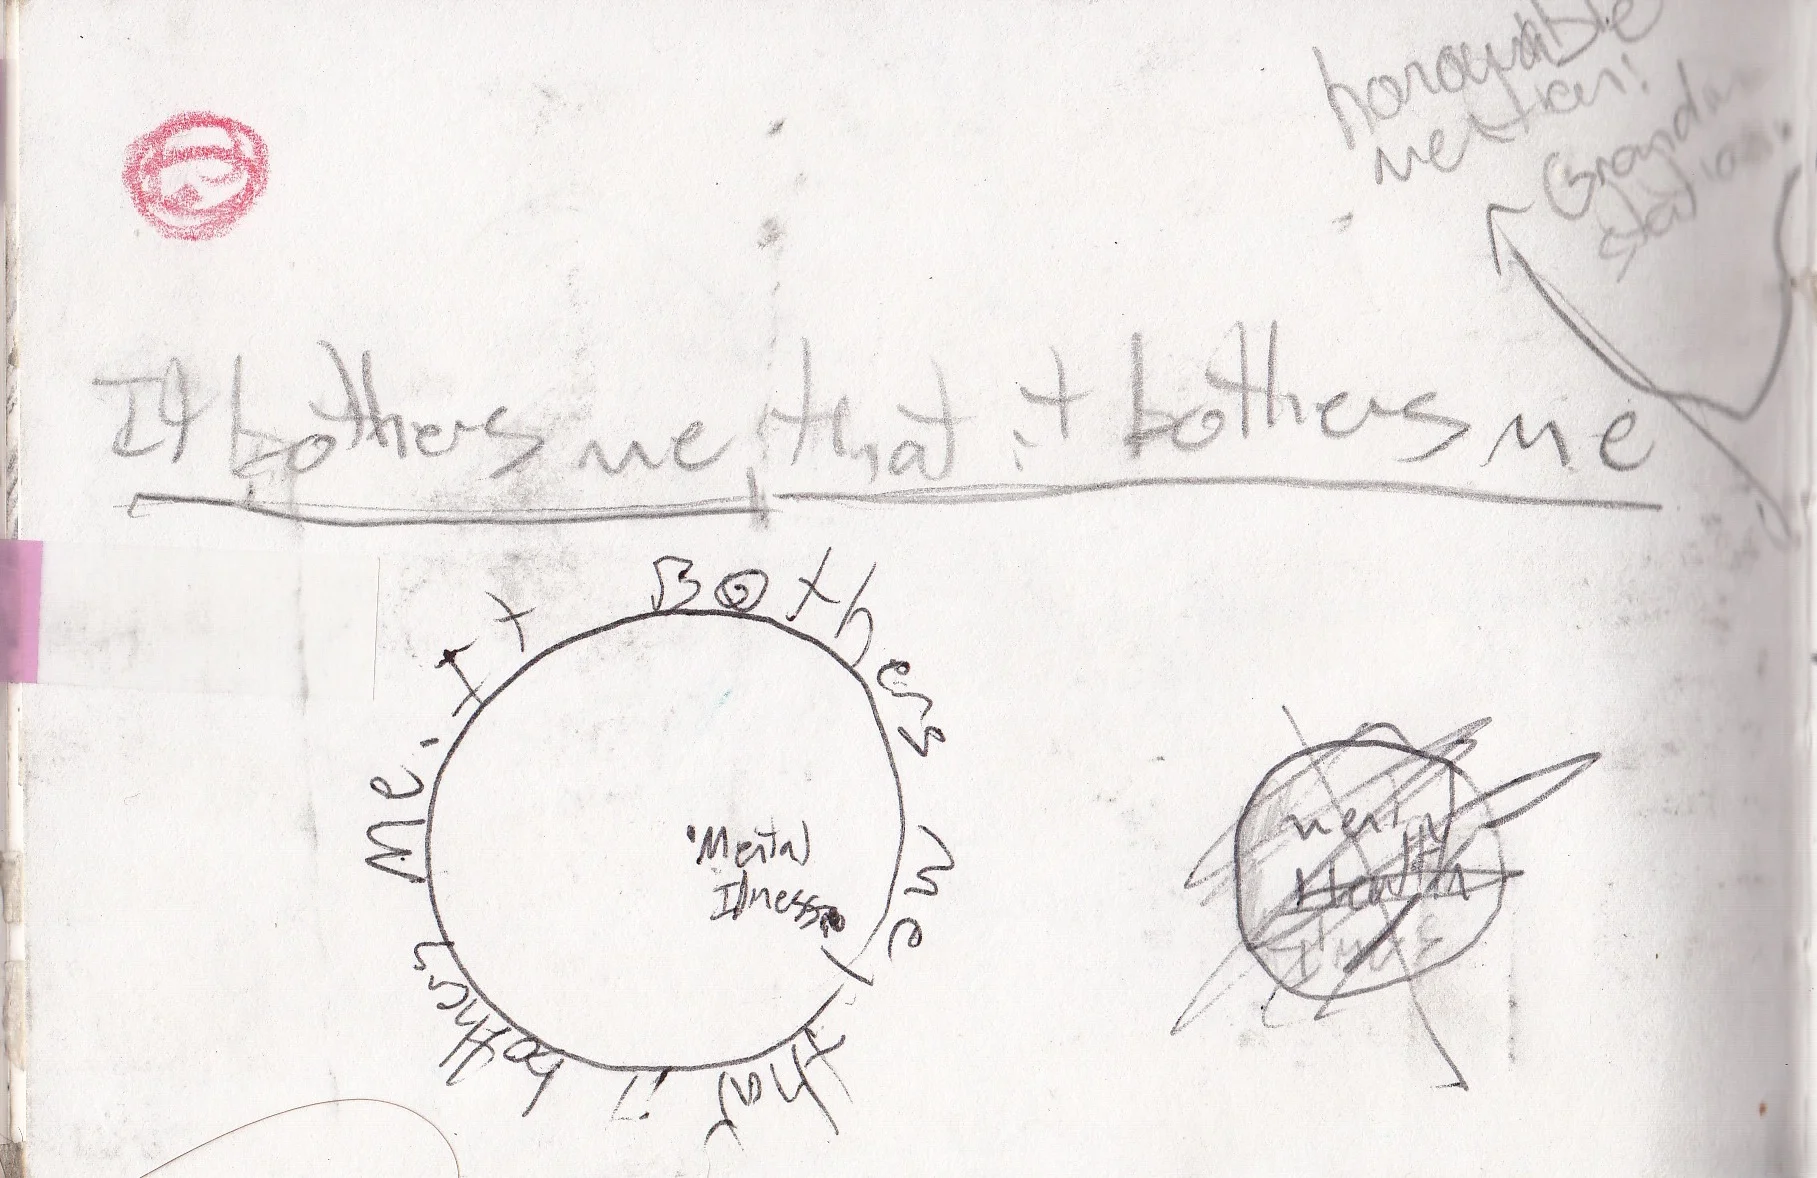 honorable
mention!
Grandma
It bothers me, that it bothers me
It Bothers me that it bothers me.
Mental
Illness
mental
Health